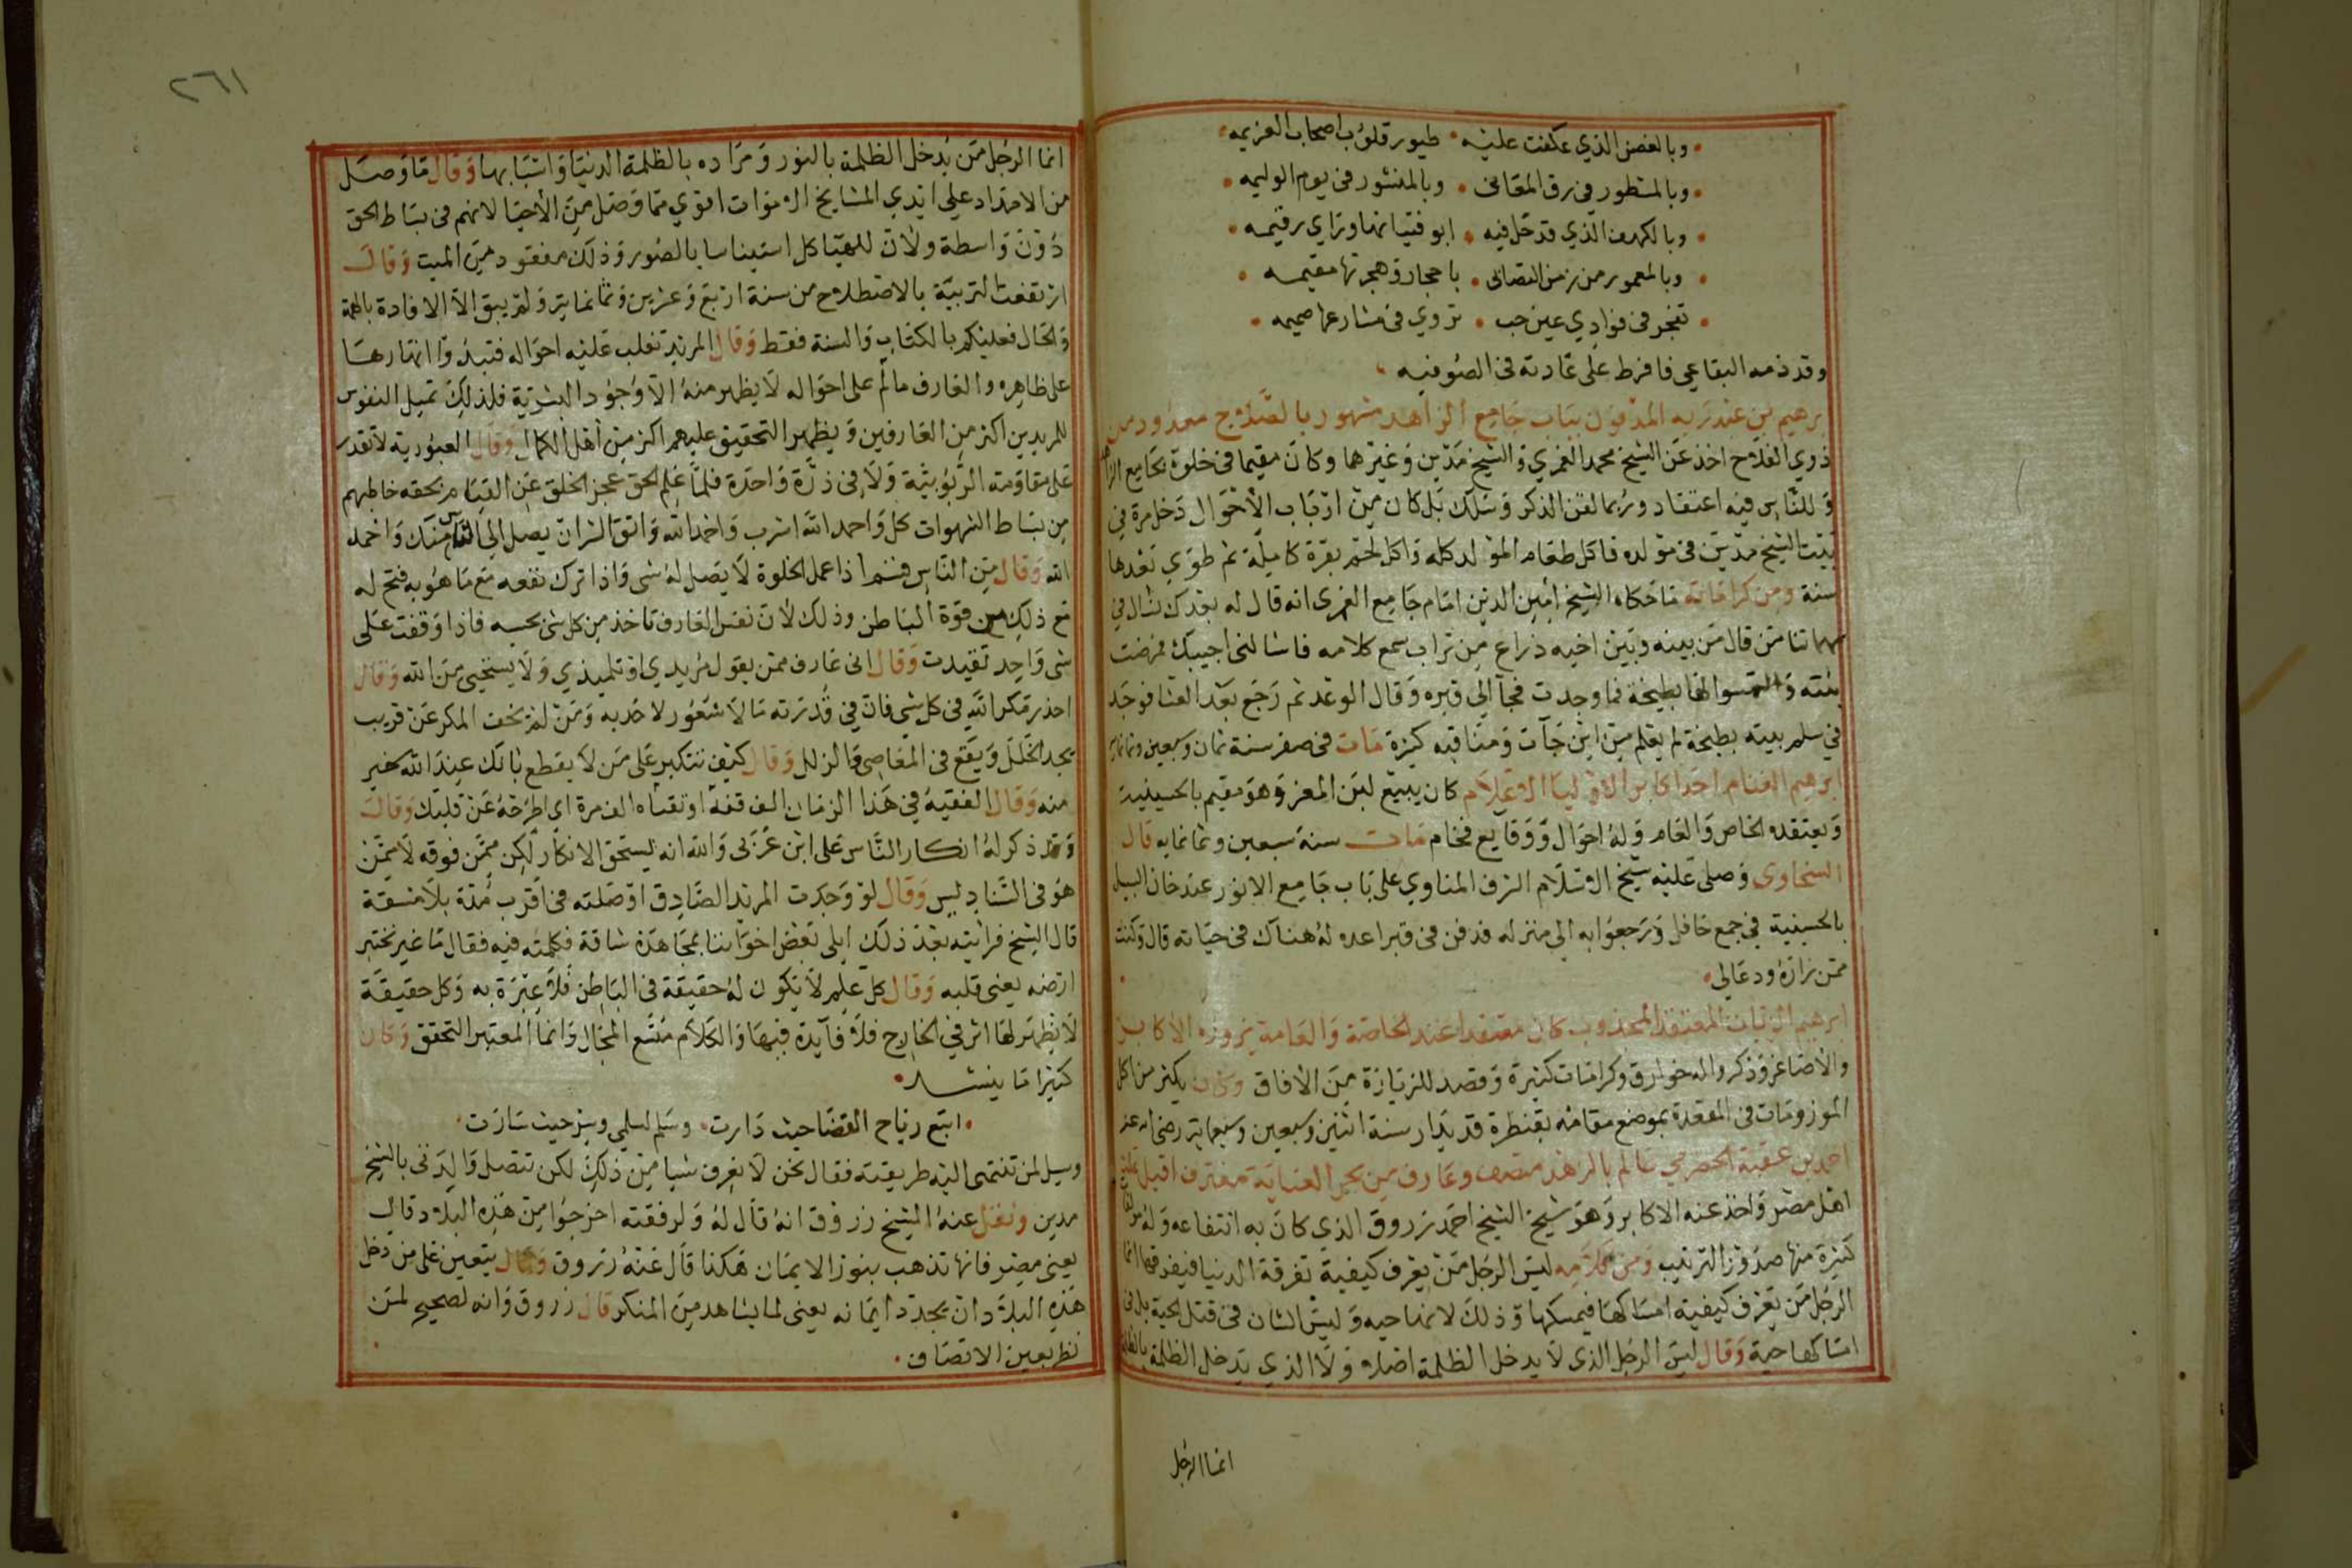 وبالغصن الذي عكفت عليه • طيور قلوب اصحاب العزيمه
وبالمسطور في رق المعاني • وبالمنشور في يوم الوليمه
وبالكهف الذي قد حل فيه • ابو فتيانها وراي رقيمه
وبالمعمور من زمن التصابي • باحجار وهجرتها مقيمه
تفجر في فوادي عين حب • تروي في مشارعها صحيمه
وقد ذمه البقاعي فافرط على عادته في الصوفيه
ابرهيم بن عبد ربه المدفون بباب جامع الزاهد مشهور بالصلاح معدود من
ذوي الفلاح اخذ عن الشيخ محمد الغمري والشيخ مدين وغيرهما وكان مقيما في خلوة بجامع الزاهد
وللناس فيه اعتقاد وربما لقن الذكر وسلك بل كان من ارباب الأحوال دخل مرة في
بيت الشيخ مدين في مولده فاكل طعام المولد كله واكل لحم بقرة كاملة ثم طوى بعدها
سنة ومن كراماته ما حكاه الشيخ امين الدين امام جامع الغمري انه قال له بعدك نسال في
مهماتنا من قال من بينه وبين اخيه ذراع من تراب سمع كلامه فاسالني اجيبك فمرضت
بنته والتمسوا لها بطيخة فما وجدت فجآ الى قبره وقال الوعد ثم رجع بعد العشا فوجد
في سلم بيته بطيخة لم يعلم من اين جآت ومناقبه كثيرة مات في صفر سنة ثمان وسبعين وثمانمايه
ابرهيم الغنام احد اكابر الاوليا الاعلام كان يبيع لبن المعز وهو مقيم بالحسينية
ويعتقده الخاص والعام وله احوال ووقايع فخام مات سنة سبعين وثمانمايه قال
السخاوى وصلى عليه شيخ الاسلام الشرف المناوي على باب جامع الانور عند خان السبيل
بالحسينية في جمع حافل ورجعوا به الى منزله فدفن في قبر اعده له هناك في حياته قال وكنت
ممن زاره ودعالي
ابرهيم الزيات المعتقد المجذوب كان معتقدا عند الخاصة والعامة يزوره الأكابر
والأصاغر وذكروا له خوارق وكرامات كثيرة وقصد للزيارة من الافاق وكان يكثر من اكل
الموز ومات في القعدة بموضع مقامه بقنطرة قديدار سنة اثنين وسبعين وسبعماية رضي الله عنه
احمد بن عقبة الحضرمي عالم بالزهد متصف وعارف من بحر العناية مغترف اقبل عليه
اهل مصر واخذ عنه الاكابر وهو شيخ الشيخ احمد زروق الذي كان به انتفاعه وله مولفات
كثيرة منها صدور الترتيب ومن كلامه ليس الرجل من يعرف كيفية تفرقة الدنيا فيفرقها انما
الرجل من يعرف كيفية امساكها فيمسكها وذلك لانها حيه وليس الشان في قتل الحية بل في
امساكها حية وقال ليس الرجل الذى لا يدخل الظلمة اصلا ولا الذي يدخل الظلمة بالظلمة
انما الرجل
٢٦١
انما الرجل من يدخل الظلمة بالنور ومراده بالظلمة الدنيا واسبابها وقال ما وصل
من الامداد على ايدي المشايخ الاموات اقوي مما وصل من الأحيا لانهم في بساط الحق
دون واسطة ولأن للحيا كل استيناسا بالصور وذلك مفقود من الميت وقال
ارتفعت التربية بالاصطلاح من سنة اربع وعشرين وثمانماية ولم يبق الا الافادة بالهمة
والحال فعليكم بالكتاب والسنة فقط وقال المريد تغلب عليه احواله فتبدوا اثارها
على ظاهره والعارف مالم على احواله لا يظهر منه الا وجود البشرية فلذلك تميل النفوس
للمريدين اكثر من العارفين ويظهر التحقيق عليهم اكثر من اهل الكمال وقال العبودية لا تقدر
على مقاومة الربوبية ولا في ذرة واحدة فلما علم الحق عجز الخلق عن القيام بحقه خاطبهم
من بساط الشهوات كل واحمد الله اشرب واحمد الله واتق الشر ان يصل الى الناس منك واحمد
الله وقال من الناس قسم اذا عمل الخلوة لا يصل له شي واذا ترك نفعه مع ما هو به فتح له
مع ذلك من قوة الباطن وذلك لان نفس العارف تاخذ من كل شي بحسبه فاذا وقفت على
شي واحد تقيدت وقال اني عارف ممن يقول مريدي او تلميذي ولا يستحي من الله وقال
احذر مكر الله في كل شي فان في قدرته ما لا شعور لاحد به ومن لم يخف المكر عن قريب
يجد الخلل ويقع في المعاصي والزلل وقال كيف تتكبر على من لا يقطع بانك عند الله خير
منه وقال الفقيه في هذا الزمان الف قفه او تقياه الف مرة اي اطرحه عن قلبك وقال
وقد ذكر له انكار الناس على ابن عربي والله انه ليستحق الانكار لكن ممن فوقه لا ممن
هو في الشنا دليس وقال لو وجدت المريد الصادق اوصلته في اقرب مدة بلا مشقة
قال الشيخ فرايته بعد ذلك ابلى بعض اخواننا بمجاهدة شاقة فكلمته فيه فقال ما غير نختبر
ارضه يعني قلبه وقال كل علم لا يكون له حقيقة في الباطن فلا عبرة به وكل حقيقة
لا يظهر لها اثر في الخارج فلا فآيدة فيها والكلام متسع المجال وانما المعتبر التحقق وكان
كثيرا ما ينشد
اتبع رياح القضا حيث دارت • وسلم لسلمي وسر حيث سارت
وسيل لمن تنتمي اليه طريقته فقال نحن لا نعرف شيا من ذلك لكن تتصل والدتي بالشيخ
مدين ونقل عنه الشيخ زروق انه قال له ولرفقته اخرجوا من هذه البلاد قال
يعني مصر فانها تذهب بنور الايمان هكذا قال عنه زروق وقال يتعين على من دخل
هذه البلاد ان يجدد ايمانه يعني لما يشاهد من المنكر قال زروق وانه لصحيح لمن
نظر بعين الانصاف